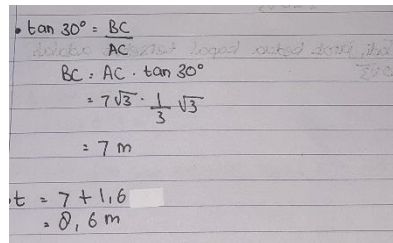 • tan 30° = BC/AC
BC = AC · tan 30°
= 7√3 · 1/3 √3
= 7 m
.t = 7 + 1,6
= 8,6 m